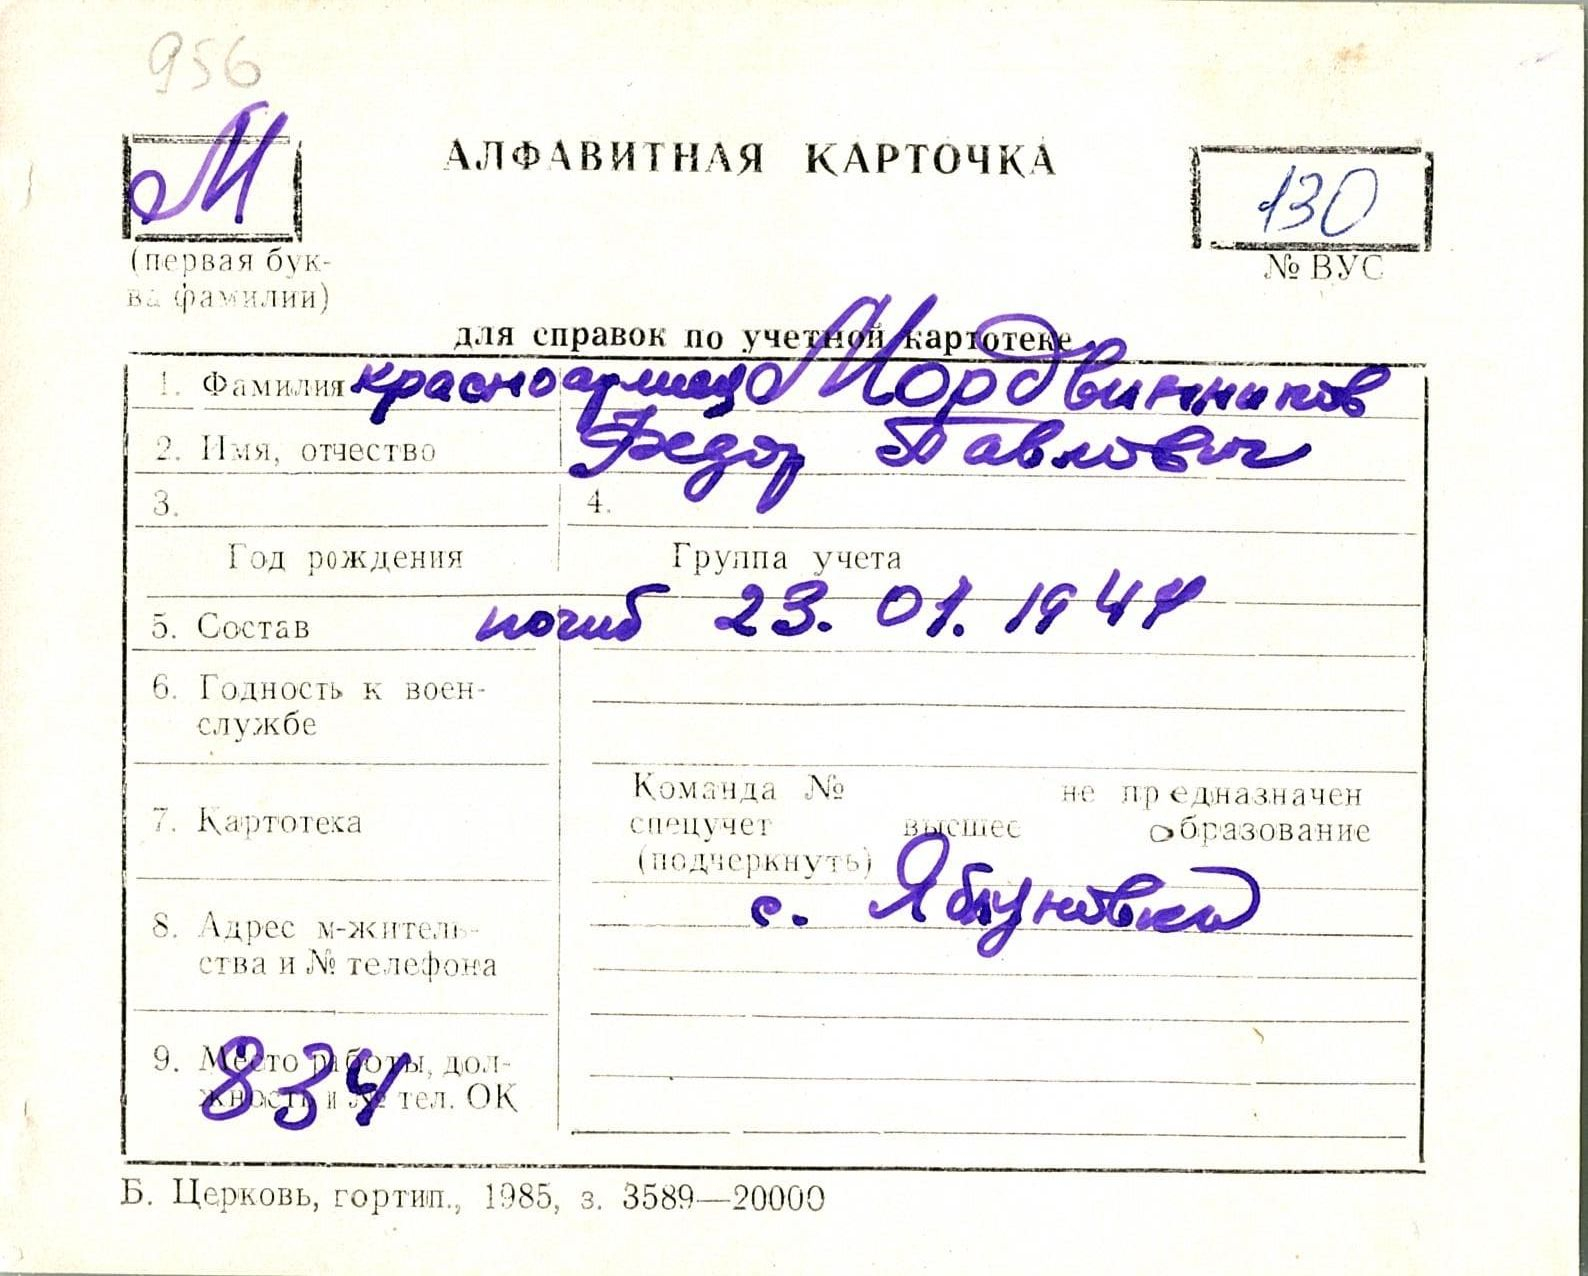 956
М
АЛФАВИТНАЯ КАРТОЧКА
130
(первая бук-
ва фамилии)
№ ВУС
для справок по учетной картотеке
1. Фамилия красноармеец Мордвинников
2. Имя, отчество Федор Павлович
3. 4.
Год рождения Группа учета
5. Состав погиб 23. 01. 1944
6. Годность к воен-
службе
Команда № не предназначен
7. Картотека спецучет высшее образование
(подчеркнуть)
с. Яблуновка
8. Адрес м-житель-
ства и № телефона
9. Место работы, дол-
жность и № тел. ОК
834
Б. Церковь, гортип., 1985, з. 3589—20000